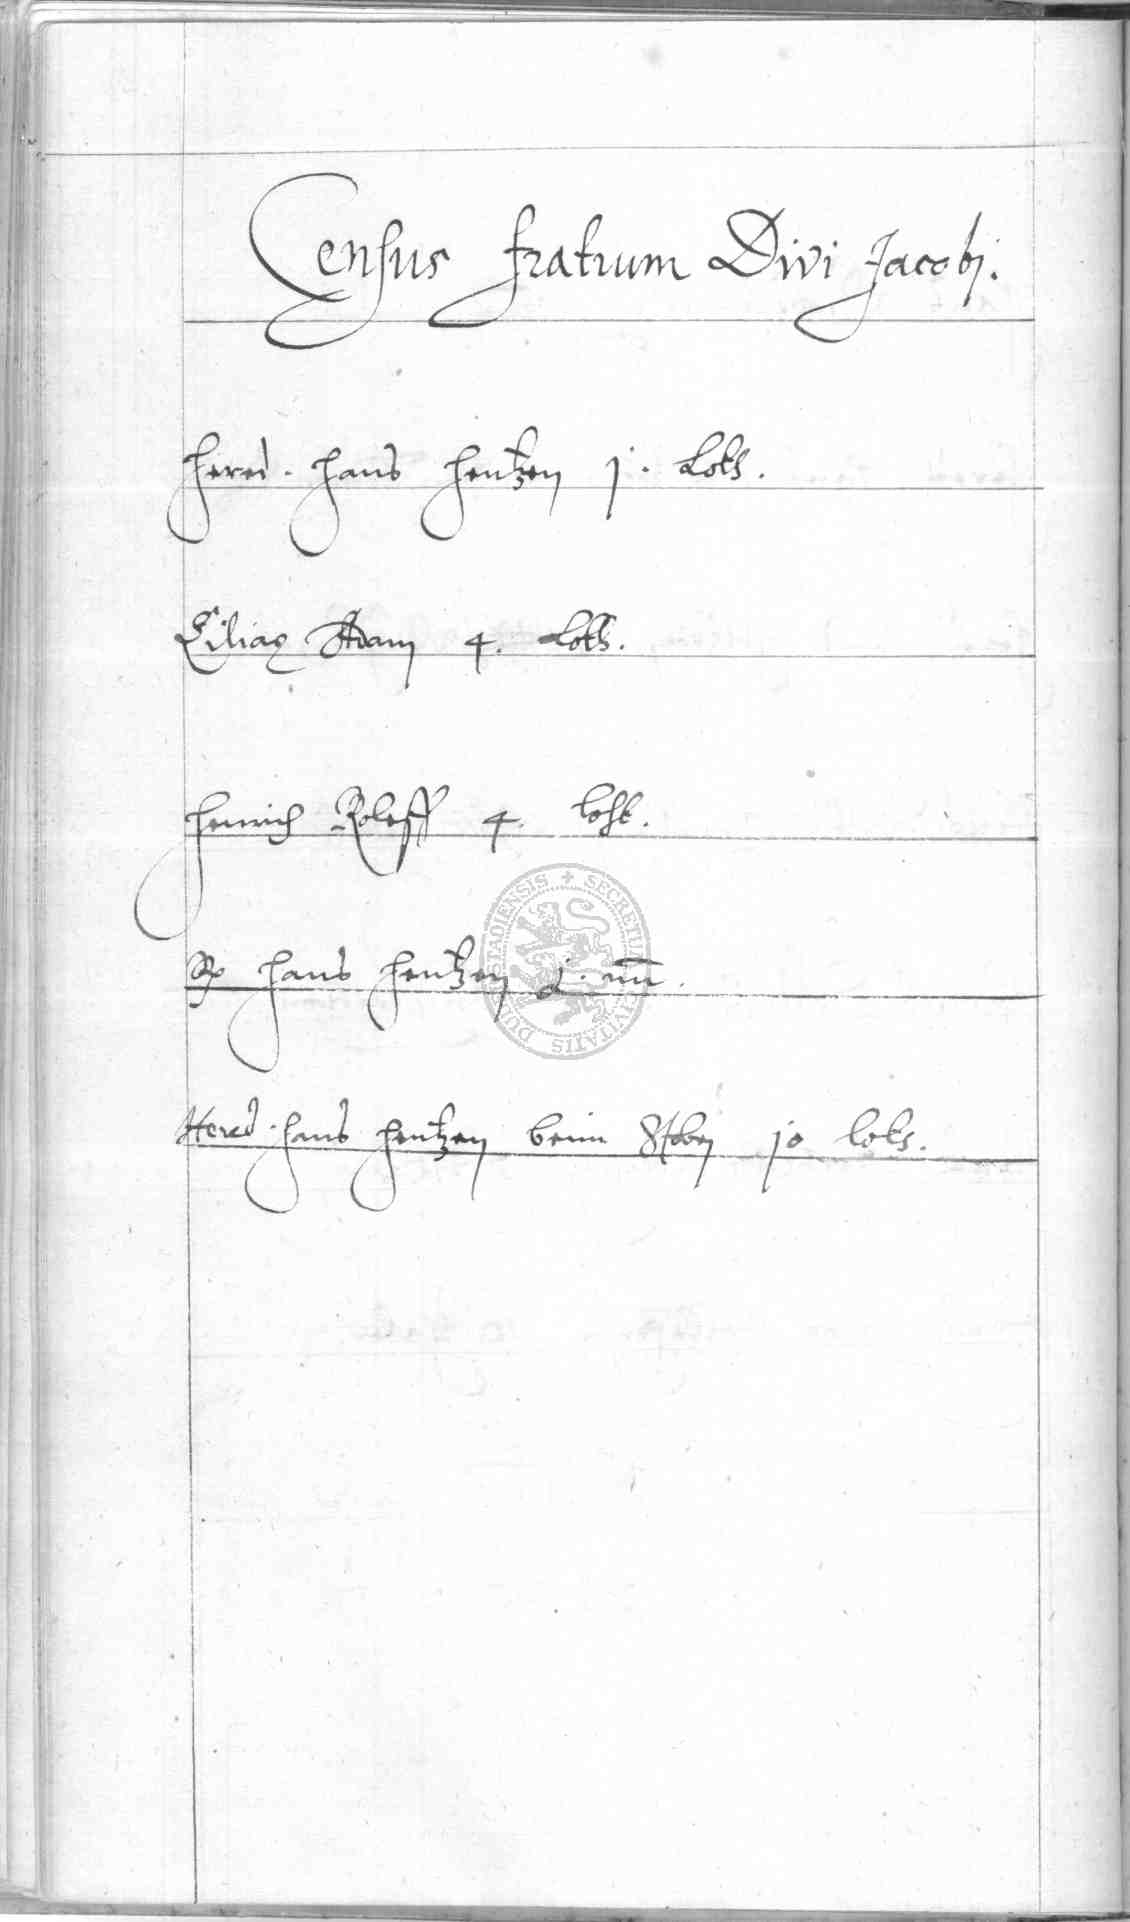 Census fratrum Divi Jacobj.
Hered. Hans Hentzen j. Loth.
Ciliax Adam 4. Loth.
Henrich Roleff 4. loht.
Hans Hentzen
Hered. Hans Hentzen beim jo loth.
SECRETUM CIVITATIS DUDERSTADIENSIS